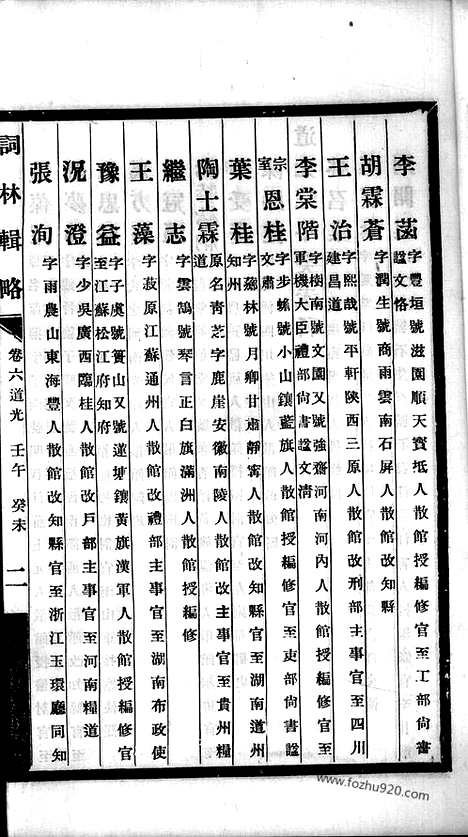 李菡 字豐垣號滋園順天寶坻人散館授編修官至工部尙書
諡文恪
胡霖蒼 字潤生號商雨雲南石屏人散館改知縣
王治 字熙哉號平軒陝西三原人散館改刑部主事官至四川
建昌道
李棠階 字樹南號文園又號強齋河南河內人散館授編修官至
軍機大臣禮部尙書諡文淸
宗室恩桂 字步蟾號小山鑲藍旗人散館授編修官至吏部尙書諡
文肅
葉桂 字蘐林號月卿甘肅靜甯人散館改知縣官至湖南道州
知州
陶士霖 原名靑芝字鹿崖安徽南陵人散館改主事官至貴州糧
道
繼志 字雲鵠號琴言正白旗滿洲人散館授編修
王藻 字菽原江蘇通州人散館改禮部主事官至湖南布政使
豫益 字子虞號簣山又號蓮塘鑲黃旗漢軍人散館授編修官
至江蘇松江府知府
況澄 字少吳廣西臨桂人散館改戶部主事官至河南糧道
張洵 字雨農山東海豐人散館改知縣官至浙江玉環廳同知
詞林輯略 卷六道光 壬午 癸未 二
www.fozhu920.com